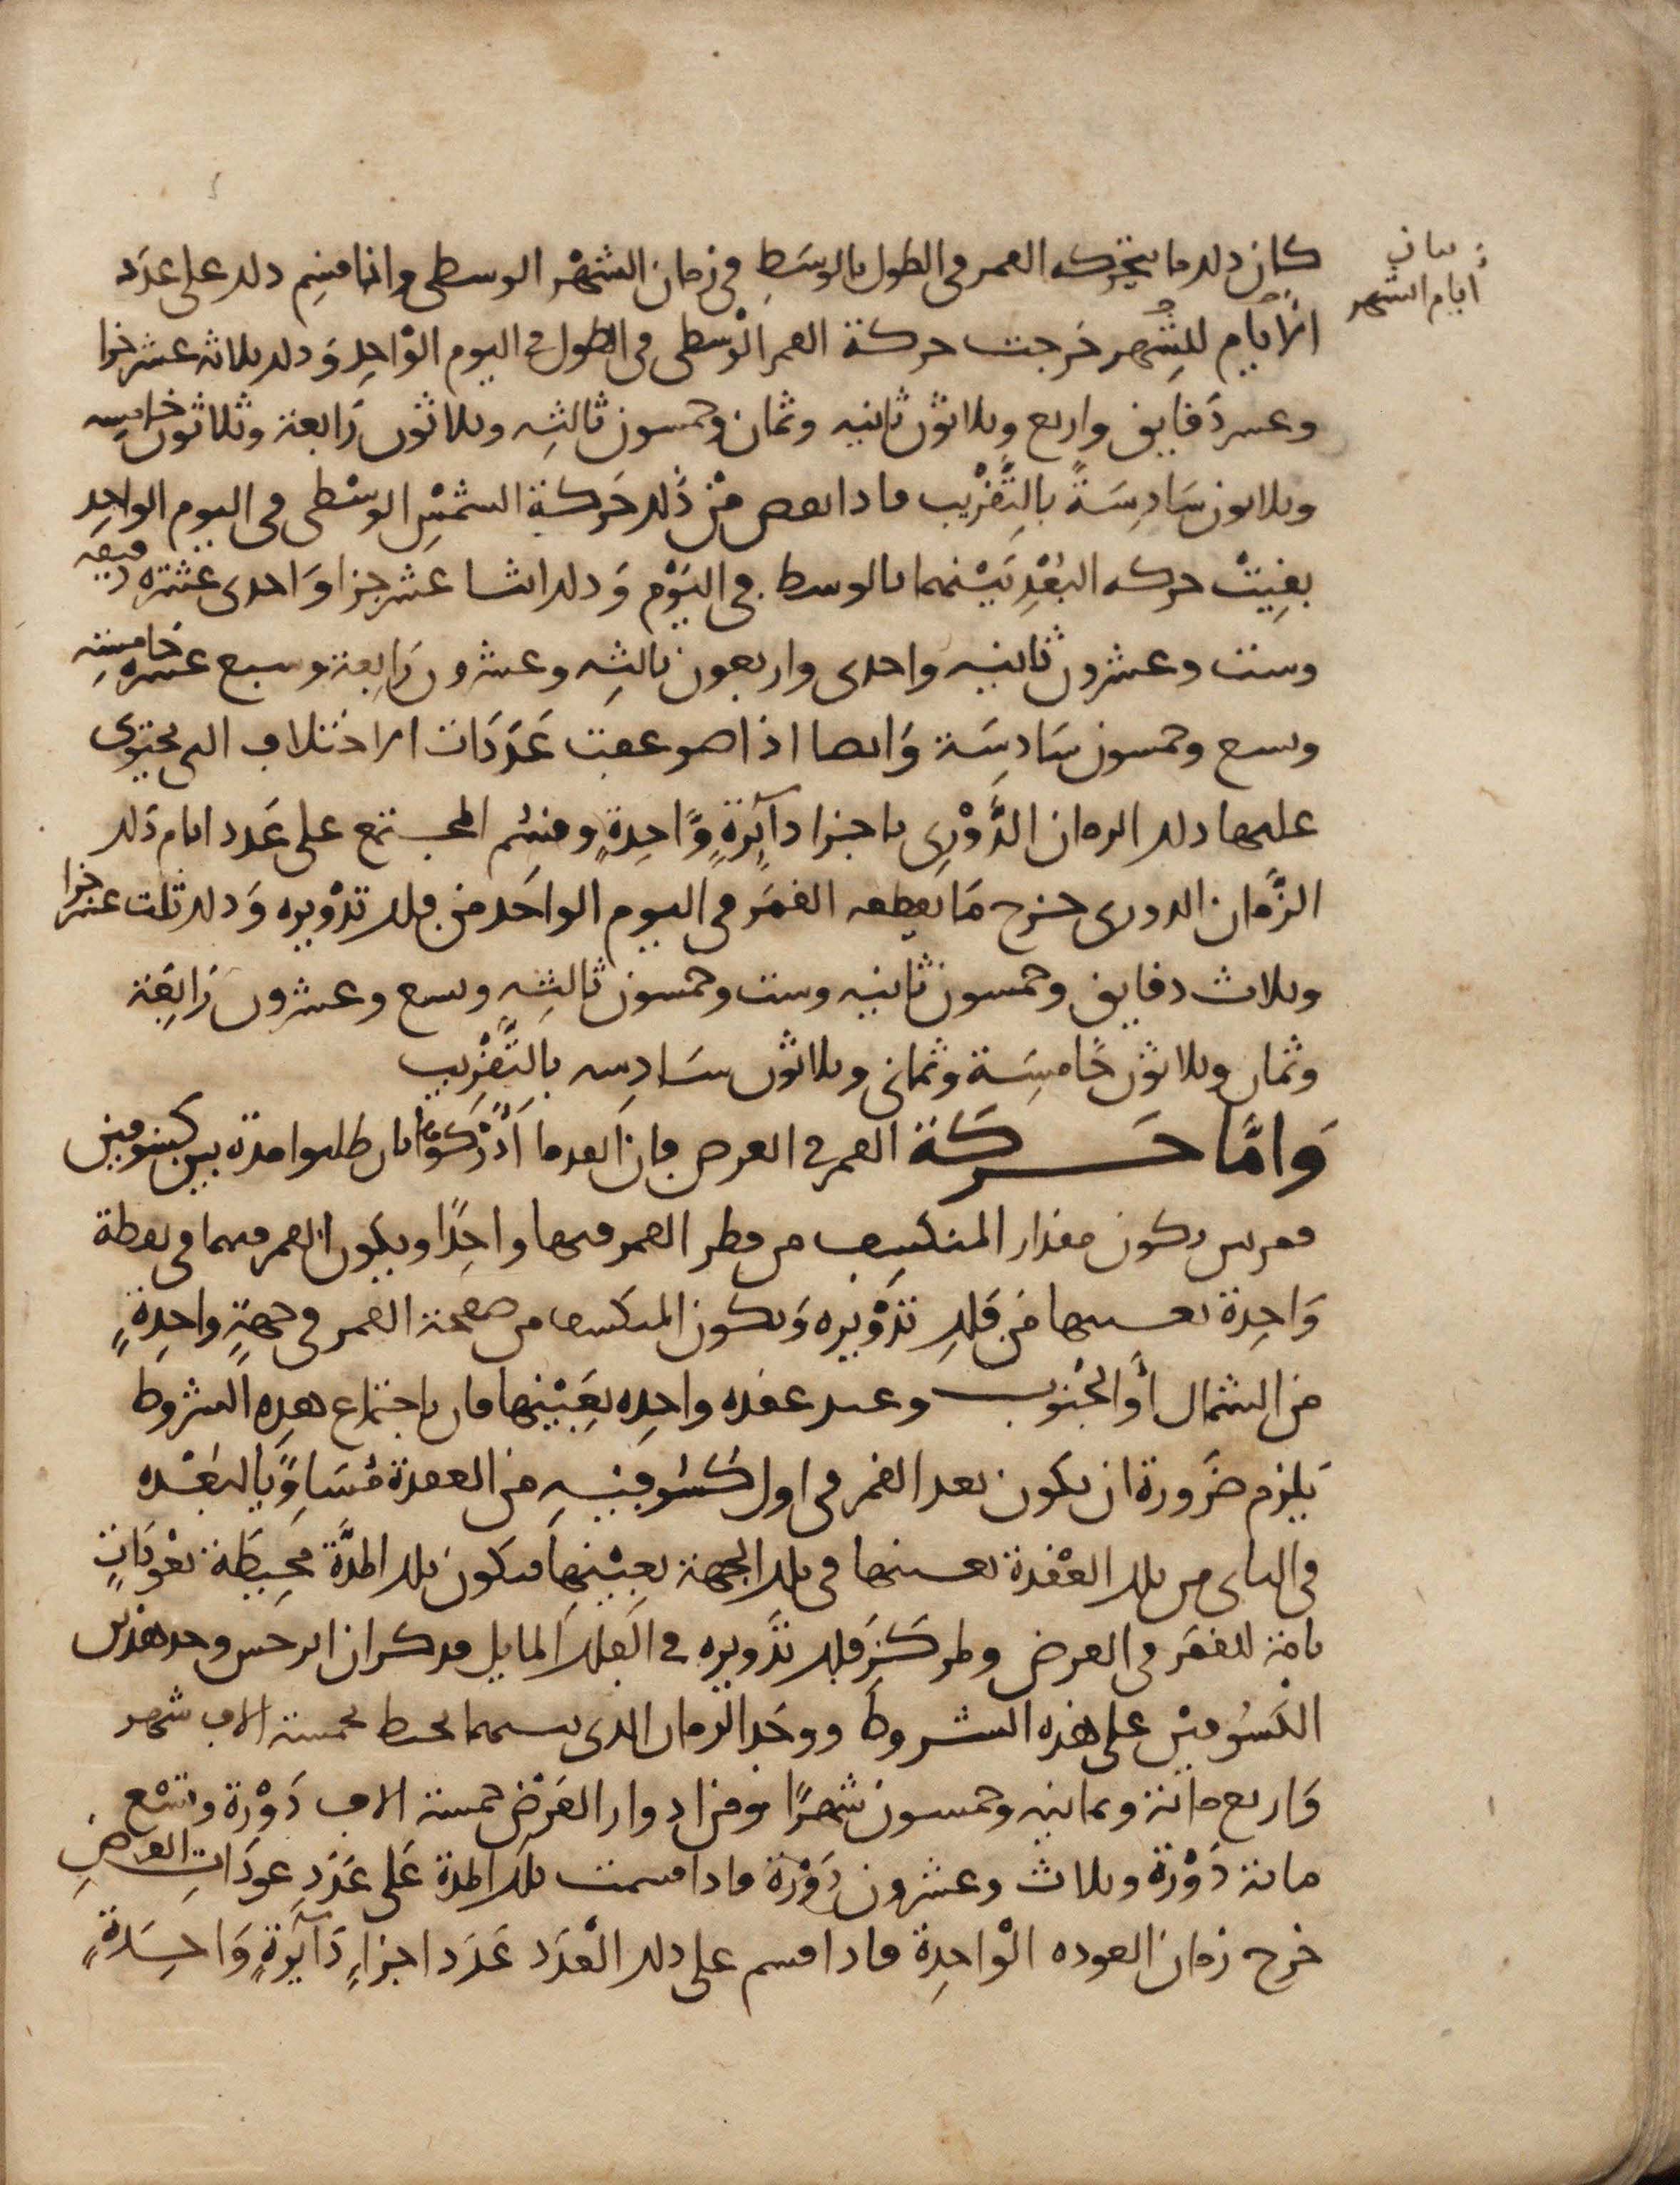 بيان
ايام الشهر
كان ذلك ما يتحركه القمر في الطول بالوسط في زمان الشهر الوسطي واذا قسم ذلك على عدد
الأيام للشهر خرجت حركة القمر الوسطى في الطول في اليوم الواحد وذلك ثلاثة عشر جزا
وعشر دقايق واربع وثلاثون ثانيه وثمان وخمسون ثالثه وثلاثون رابعة وثلاثون خامسه
وثلاثون سادسة بالتقريب فاذا نقص من ذلك حركة الشمس الوسطى في اليوم الواحد
بقيت حركه البعد بينهما بالوسط في اليوم وذلك اثنا عشر جزا واحدى عشره دقيقه
وست وعشرون ثانيه واحدى واربعون ثالثه وعشرون رابعة وسبع عشره خامسه
وتسع وخمسون سادسة وايضا اذا ضوعفت عددات الاختلاف التي يحتوي
عليها ذلك الزمان الدوري باجزا دآئرة واحدة وقسم المجتمع على عدد ايام ذلك
الزمان الدوري خرج ما يقطعه القمر في اليوم الواحد من فلك تدويره وذلك ثلث عشر جزا
وثلاث دقايق وخمسون ثانيه وست وخمسون ثالثه وتسع وعشرون رابعة
وثمان وثلاثون خامسة وثماني وثلاثون سادسه بالتقريب
واما حركة القمر في العرض فان القدما ادركوها بان طلبوا مدة بين كسوفين
قمريين يكون مقدار المنكسف من قطر القمر فيهما واحدا ويكون القمر فيهما في نقطة
واحدة بعينها من فلك تدويره ويكون المنكسف من صفحة القمر في جهة واحدة
من الشمال أو الجنوب وعند عقده واحده بعينها فان باجتماع هذه الشروط
يلزم ضرورة ان يكون بعد القمر في اول كسوفيه من العقدة مساويا لبعده
في الثاني من تلك العقدة بعينها في تلك الجهة بعينها فيكون تلك المدة محيطة بعودات
تامة للقمر في العرض ولمركز فلك تدويره في الفلك المايل فذكر ان ابرخس وجد هذين
الكسوفين على هذه الشروط ووجد الزمان الذي بينهما يحيط بخمسة الاف شهر
واربع مائة وثمانيه وخمسون شهرا ومن ادوار العرض خمسة الاف دورة وتسع
مائة دورة وثلاث وعشرون دورة فاذا قسمت تلك المدة على عدد عودات العرض
خرج زمان العوده الواحدة فاذا قسم على ذلك العدد عدد اجزاء دآيرة واحدة